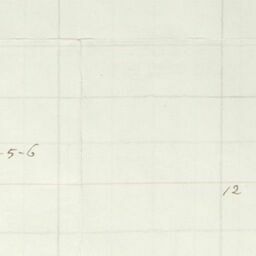 -5-6
12